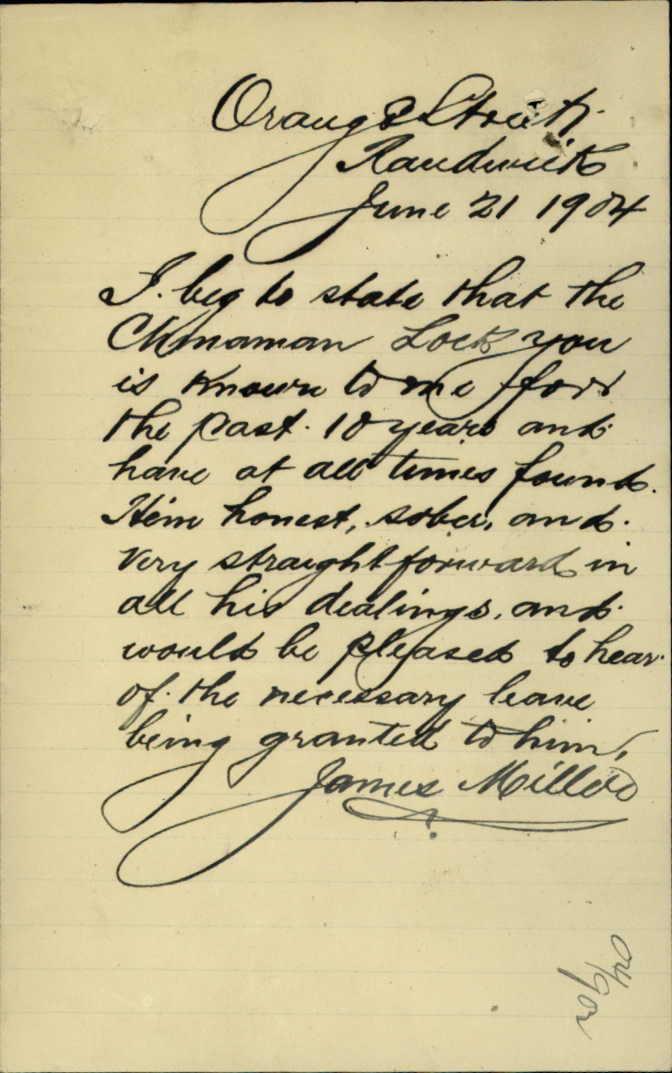 Orange Street
Randwick
June 21 1904
I. beg to state that the
Chinaman Lock you
is known to me for
the past. 10 years and
have at all times found.
Him honest, sober, and.
very straightforward in
all his dealings. and
would be pleased to hear.
of. the necessary leave
being granted to him,
James Miller